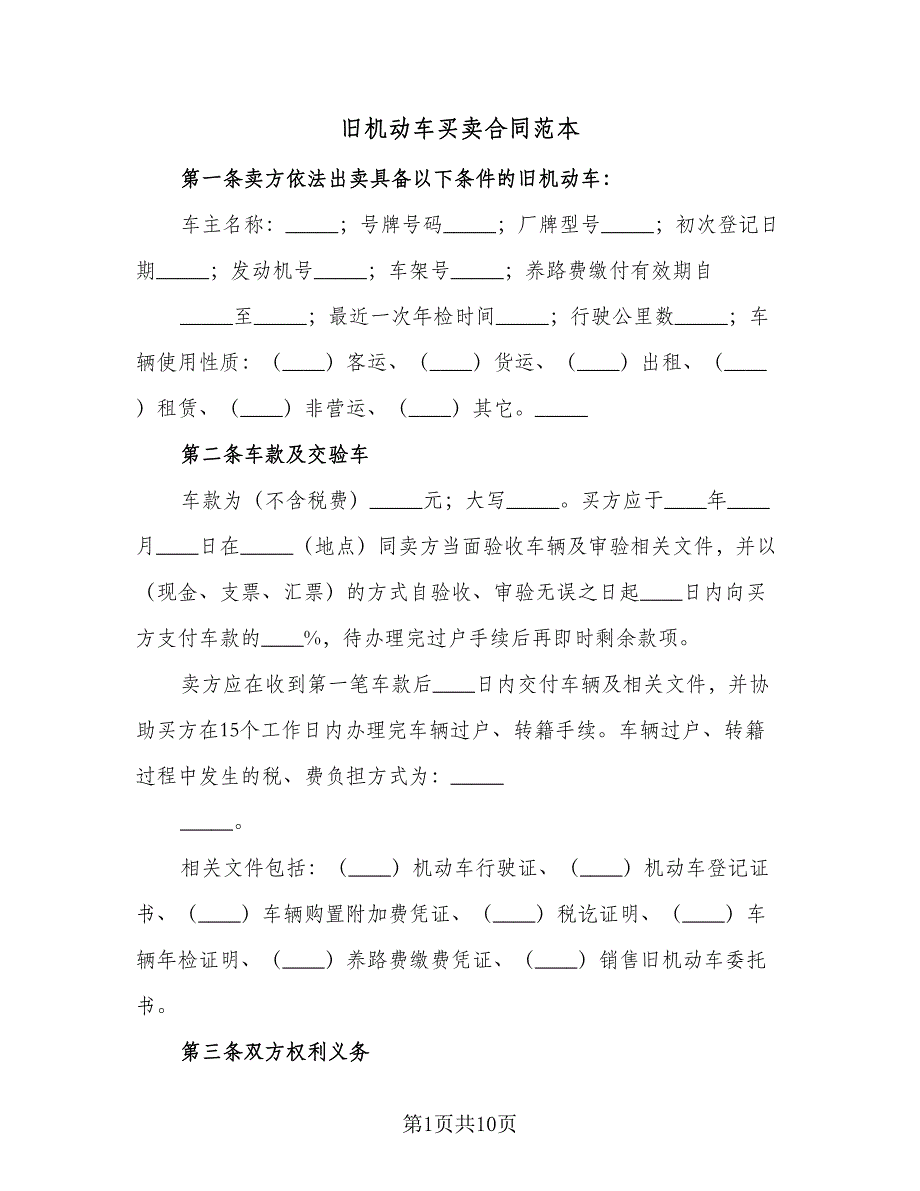 旧机动车买卖合同范本
第一条卖方依法出卖具备以下条件的旧机动车：
车主名称：_____；号牌号码_____；厂牌型号_____；初次登记日
期_____；发动机号_____；车架号_____；养路费缴付有效期自
_____至_____；最近一次年检时间_____；行驶公里数_____；车
辆使用性质：（____）客运、（____）货运、（____）出租、（____
）租赁、（____）非营运、（____）其它。_____
第二条车款及交验车
车款为（不含税费）_____元；大写_____。买方应于____年____
月____日在_____（地点）同卖方当面验收车辆及审验相关文件，并以
（现金、支票、汇票）的方式自验收、审验无误之日起____日内向买
方支付车款的____%，待办理完过户手续后再即时剩余款项。
卖方应在收到第一笔车款后____日内交付车辆及相关文件，并协
助买方在15个工作日内办理完车辆过户、转籍手续。车辆过户、转籍
过程中发生的税、费负担方式为：_____
_____。
相关文件包括：（____）机动车行驶证、（____）机动车登记证
书、（____）车辆购置附加费凭证、（____）税讫证明、（____）车
辆年检证明、（____）养路费缴费凭证、（____）销售旧机动车委托
书。
第三条双方权利义务
第1页共10页